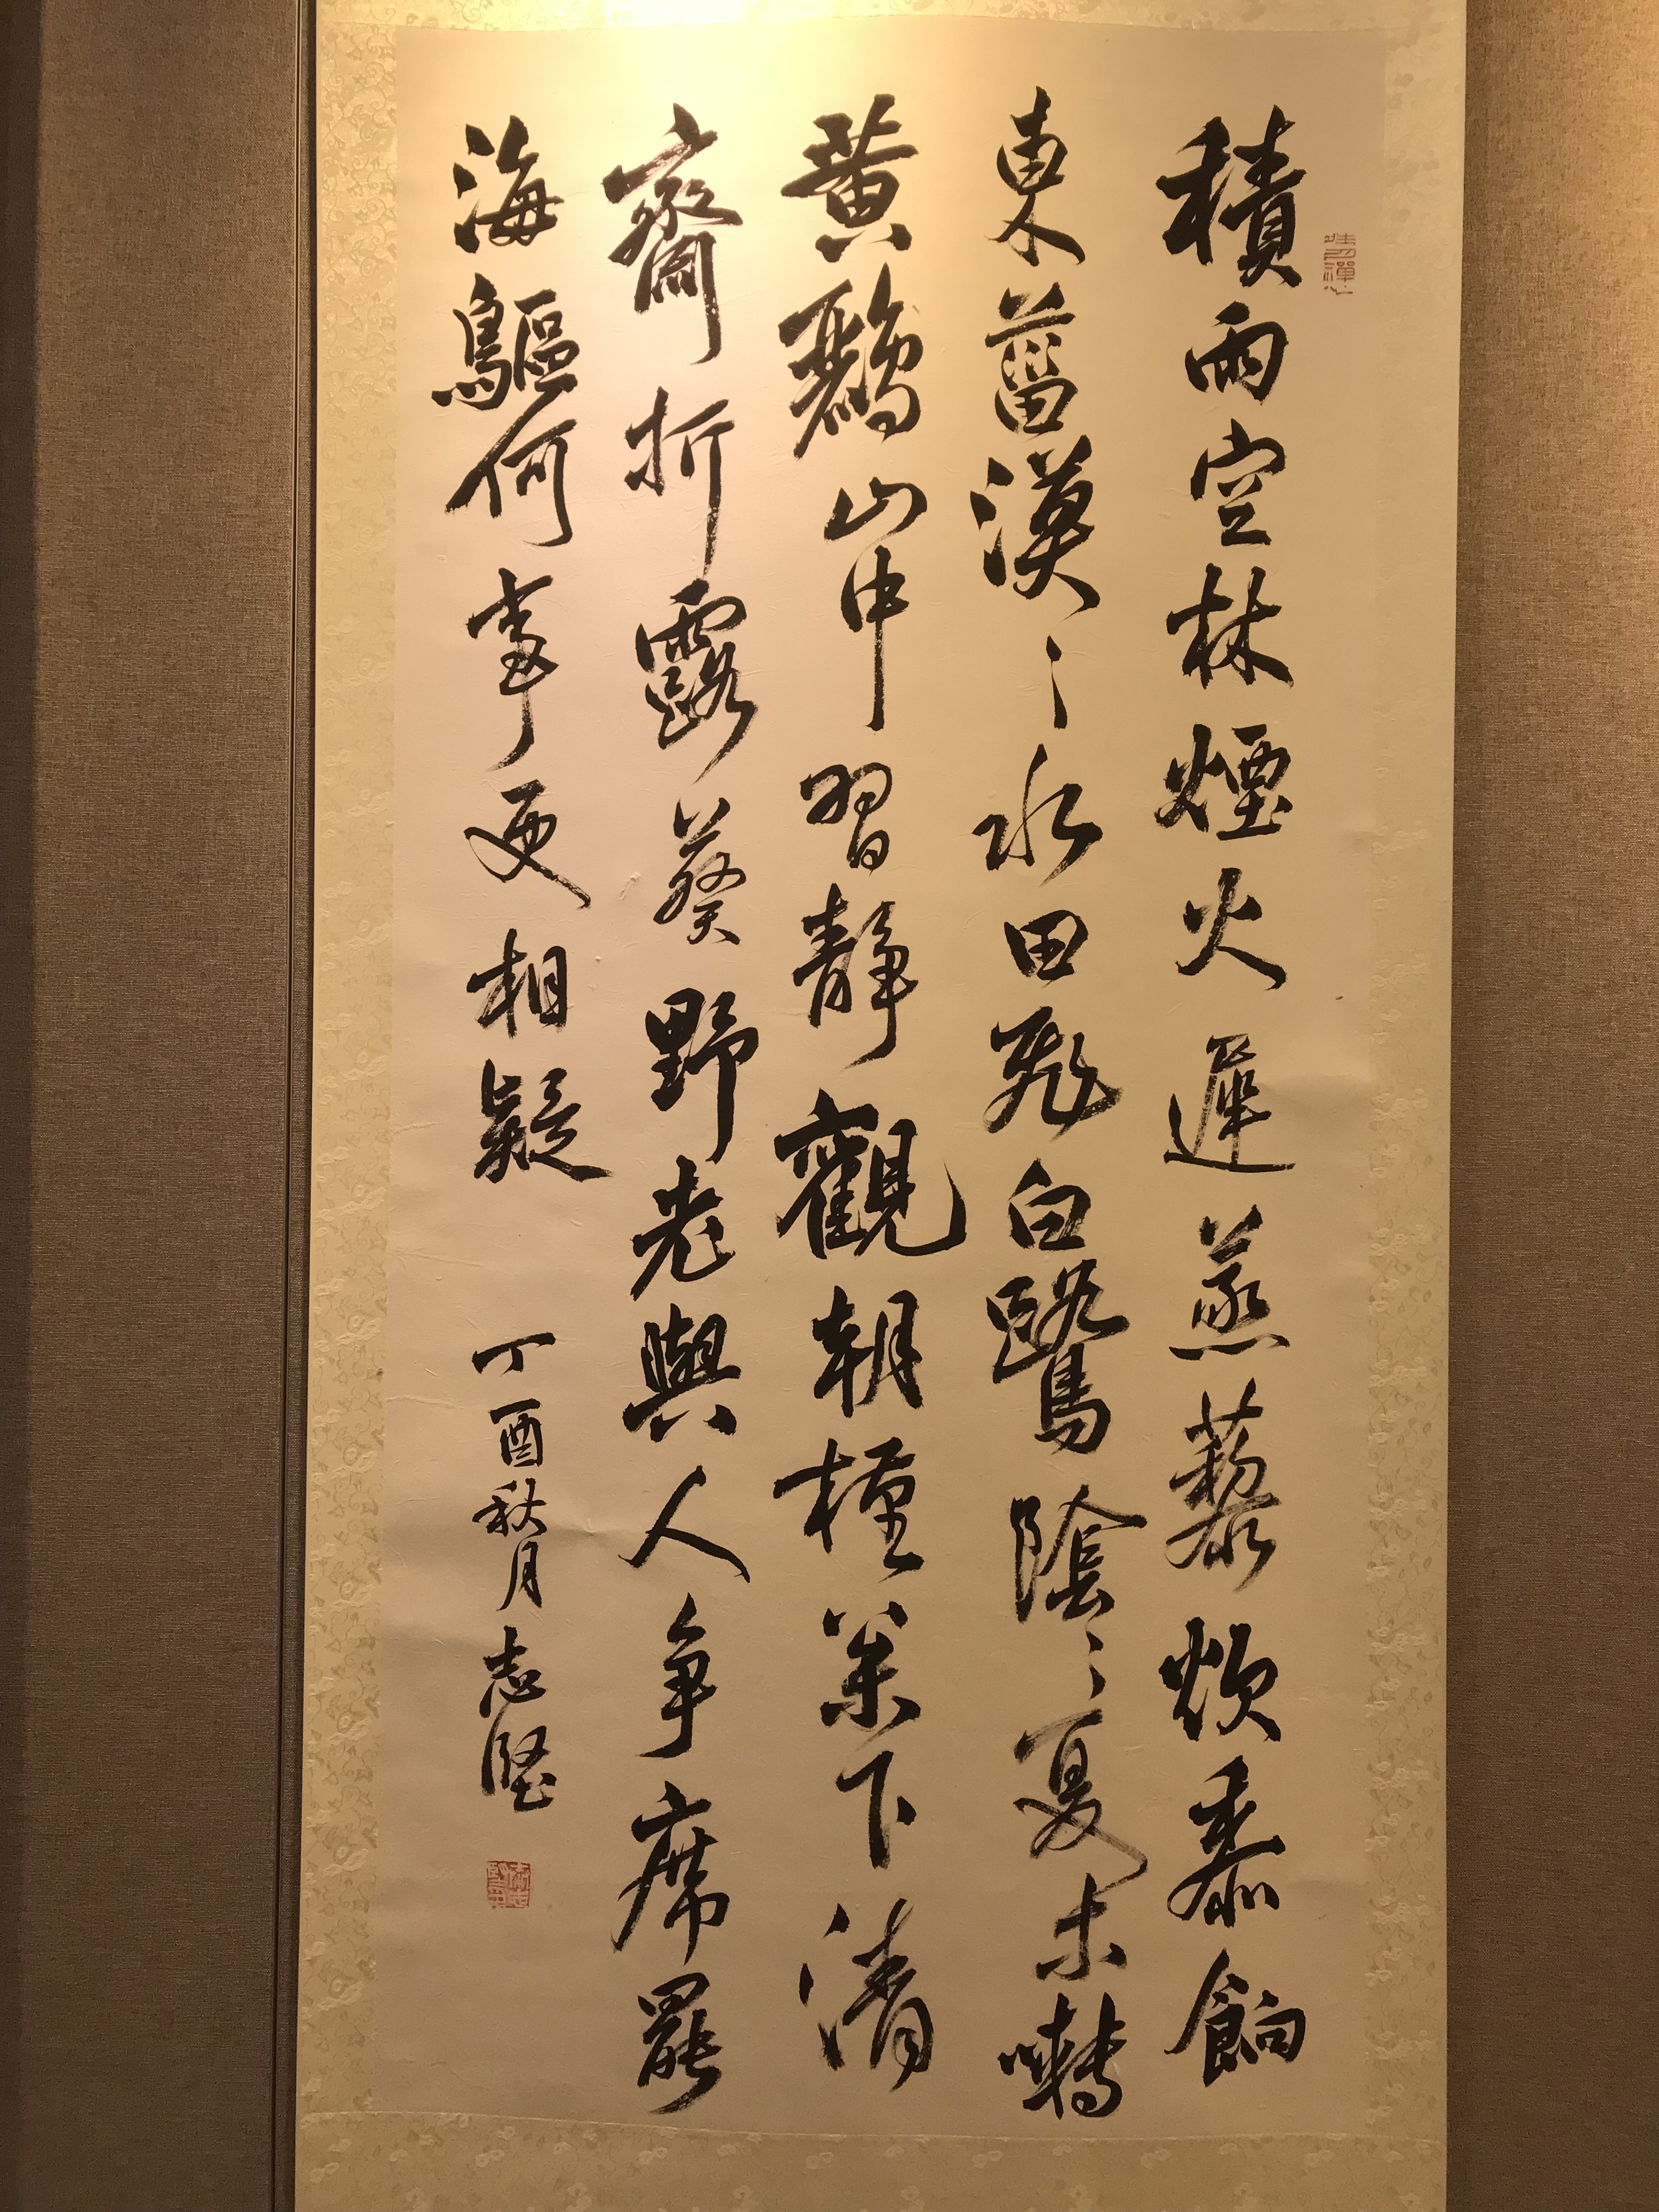 積雨空林煙火遲蒸藜炊黍餉
東菑漠〻水田飛白鷺陰〻夏木囀
黄鸝山中習靜觀朝槿松下清
齋折露葵野老與人争席罷
海鷗何事更相疑 丁酉秋月 志堅